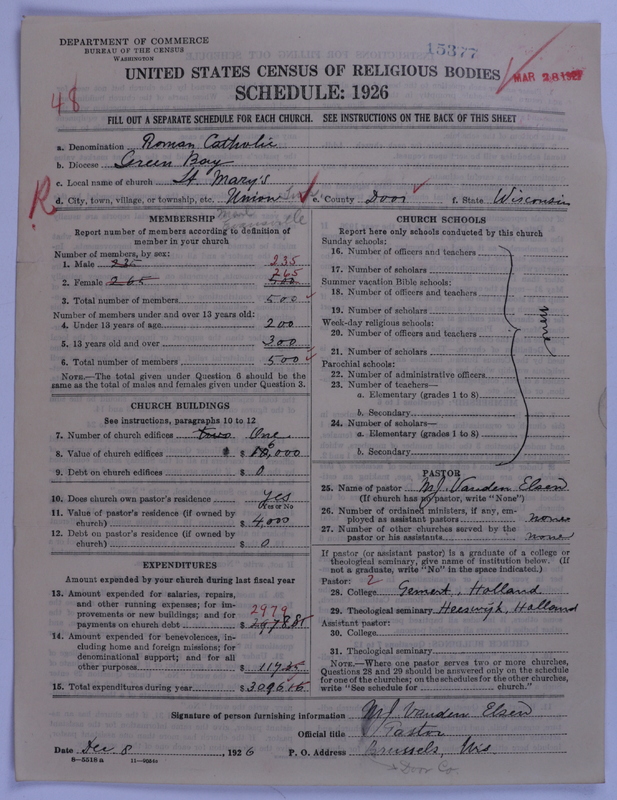 DEPARTMENT OF COMMERCE
BUREAU OF THE CENSUS
WASHINGTON
15377
UNITED STATES CENSUS OF RELIGIOUS BODIES
MAR 28 1927
SCHEDULE: 1926
48
FILL OUT A SEPARATE SCHEDULE FOR EACH CHURCH. SEE INSTRUCTIONS ON THE BACK OF THIS SHEET
a. Denomination Roman Catholic
b. Diocese Green Bay
c. Local name of church St Mary's
R d. City, town, village, or township, etc. Union e. County Door f. State Wisconsin
MEMBERSHIP
Report number of members according to definition of
member in your church
Number of members, by sex:
1. Male 235 235
2. Female 265 265 500
3. Total number of members 500
Number of members under and over 13 years old:
4. Under 13 years of age 200
5. 13 years old and over 300
6. Total number of members 500
NOTE.—The total given under Question 6 should be
same as the total of males and females given under Question 3.
CHURCH BUILDINGS
See instructions, paragraphs 10 to 12
7. Number of church edifices two One
8. Value of church edifices $ 6,000
9. Debt on church edifices $ 0
10. Does church own pastor's residence yes
Yes or No
11. Value of pastor's residence (if owned by
church) $ 4,000
12. Debt on pastor's residence (if owned by
church) $ 0
EXPENDITURES
Amount expended by your church during last fiscal year
13. Amount expended for salaries, repairs,
and other running expenses; for im-
provements or new buildings; and for 2979
payments on church debt $ 2978.85
14. Amount expended for benevolences, in-
cluding home and foreign missions; for
denominational support; and for all
other purposes $
15. Total expenditures during year $ 3096
CHURCH SCHOOLS
Report here only schools conducted by this church
Sunday schools:
16. Number of officers and teachers
17. Number of scholars
Summer vacation Bible schools:
18. Number of officers and teachers
19. Number of scholars
Week-day religious schools:
20. Number of officers and teachers
21. Number of scholars
none
Parochial schools:
22. Number of administrative officers
23. Number of teachers—
a. Elementary (grades 1 to 8)
b. Secondary
24. Number of scholars—
a. Elementary (grades 1 to 8)
b. Secondary
PASTOR
25. Name of pastor MJ Vanden Elsen
(If church has no pastor, write "None")
26. Number of ordained ministers, if any, em-
ployed as assistant pastors none
27. Number of other churches served by the
pastor or his assistants none
If pastor (or assistant pastor) is a graduate of a college or
theological seminary, give name of institution below. (If
not a graduate, write "No" in the space indicated.)
Pastor: 2
28. College Gemert, Holland
29. Theological seminary Heeswijk, Holland
Assistant pastor:
30. College
31. Theological seminary
NOTE.—Where one pastor serves two or more churches,
Questions 28 and 29 should be answered only on the schedule
for one of the churches; on the schedules for the other churches,
write "See schedule for church."
Signature of person furnishing information MJ Vanden Elsen
Official title Pastor
Date Dec 8, 1926 P. O. Address Brussels, Wis
8—5518 a
Door Co.